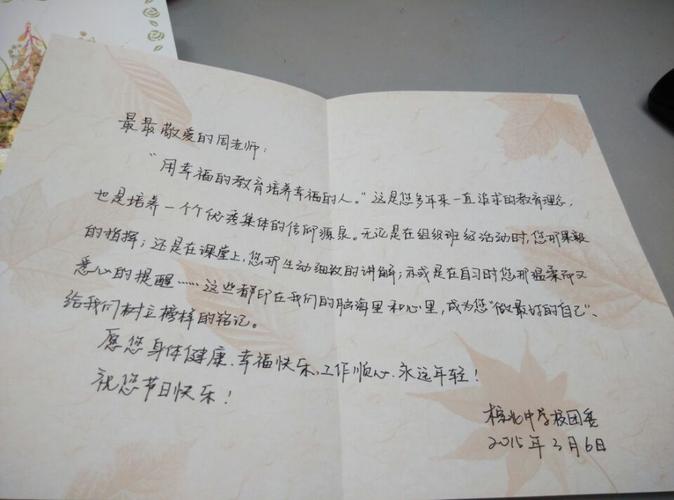 最最敬爱的周老师：
“用幸福的教育培养幸福的人。”这是您多年来一直追求的教育理念，
也是培养一个个优秀集体的信仰源泉。无论是在组织班级活动时，您那果敢
的指挥；还是在课堂上，您那生动细致的讲解；亦或是在自习时您那温柔而又
悉心的提醒……这些都印在我们的脑海里和心里，成为您“做最好的自己”、
给我们树立榜样的铭记。
愿您身体健康、幸福快乐、工作顺心、永远年轻！
祝您节日快乐！
中学校团委
2015年3月6日